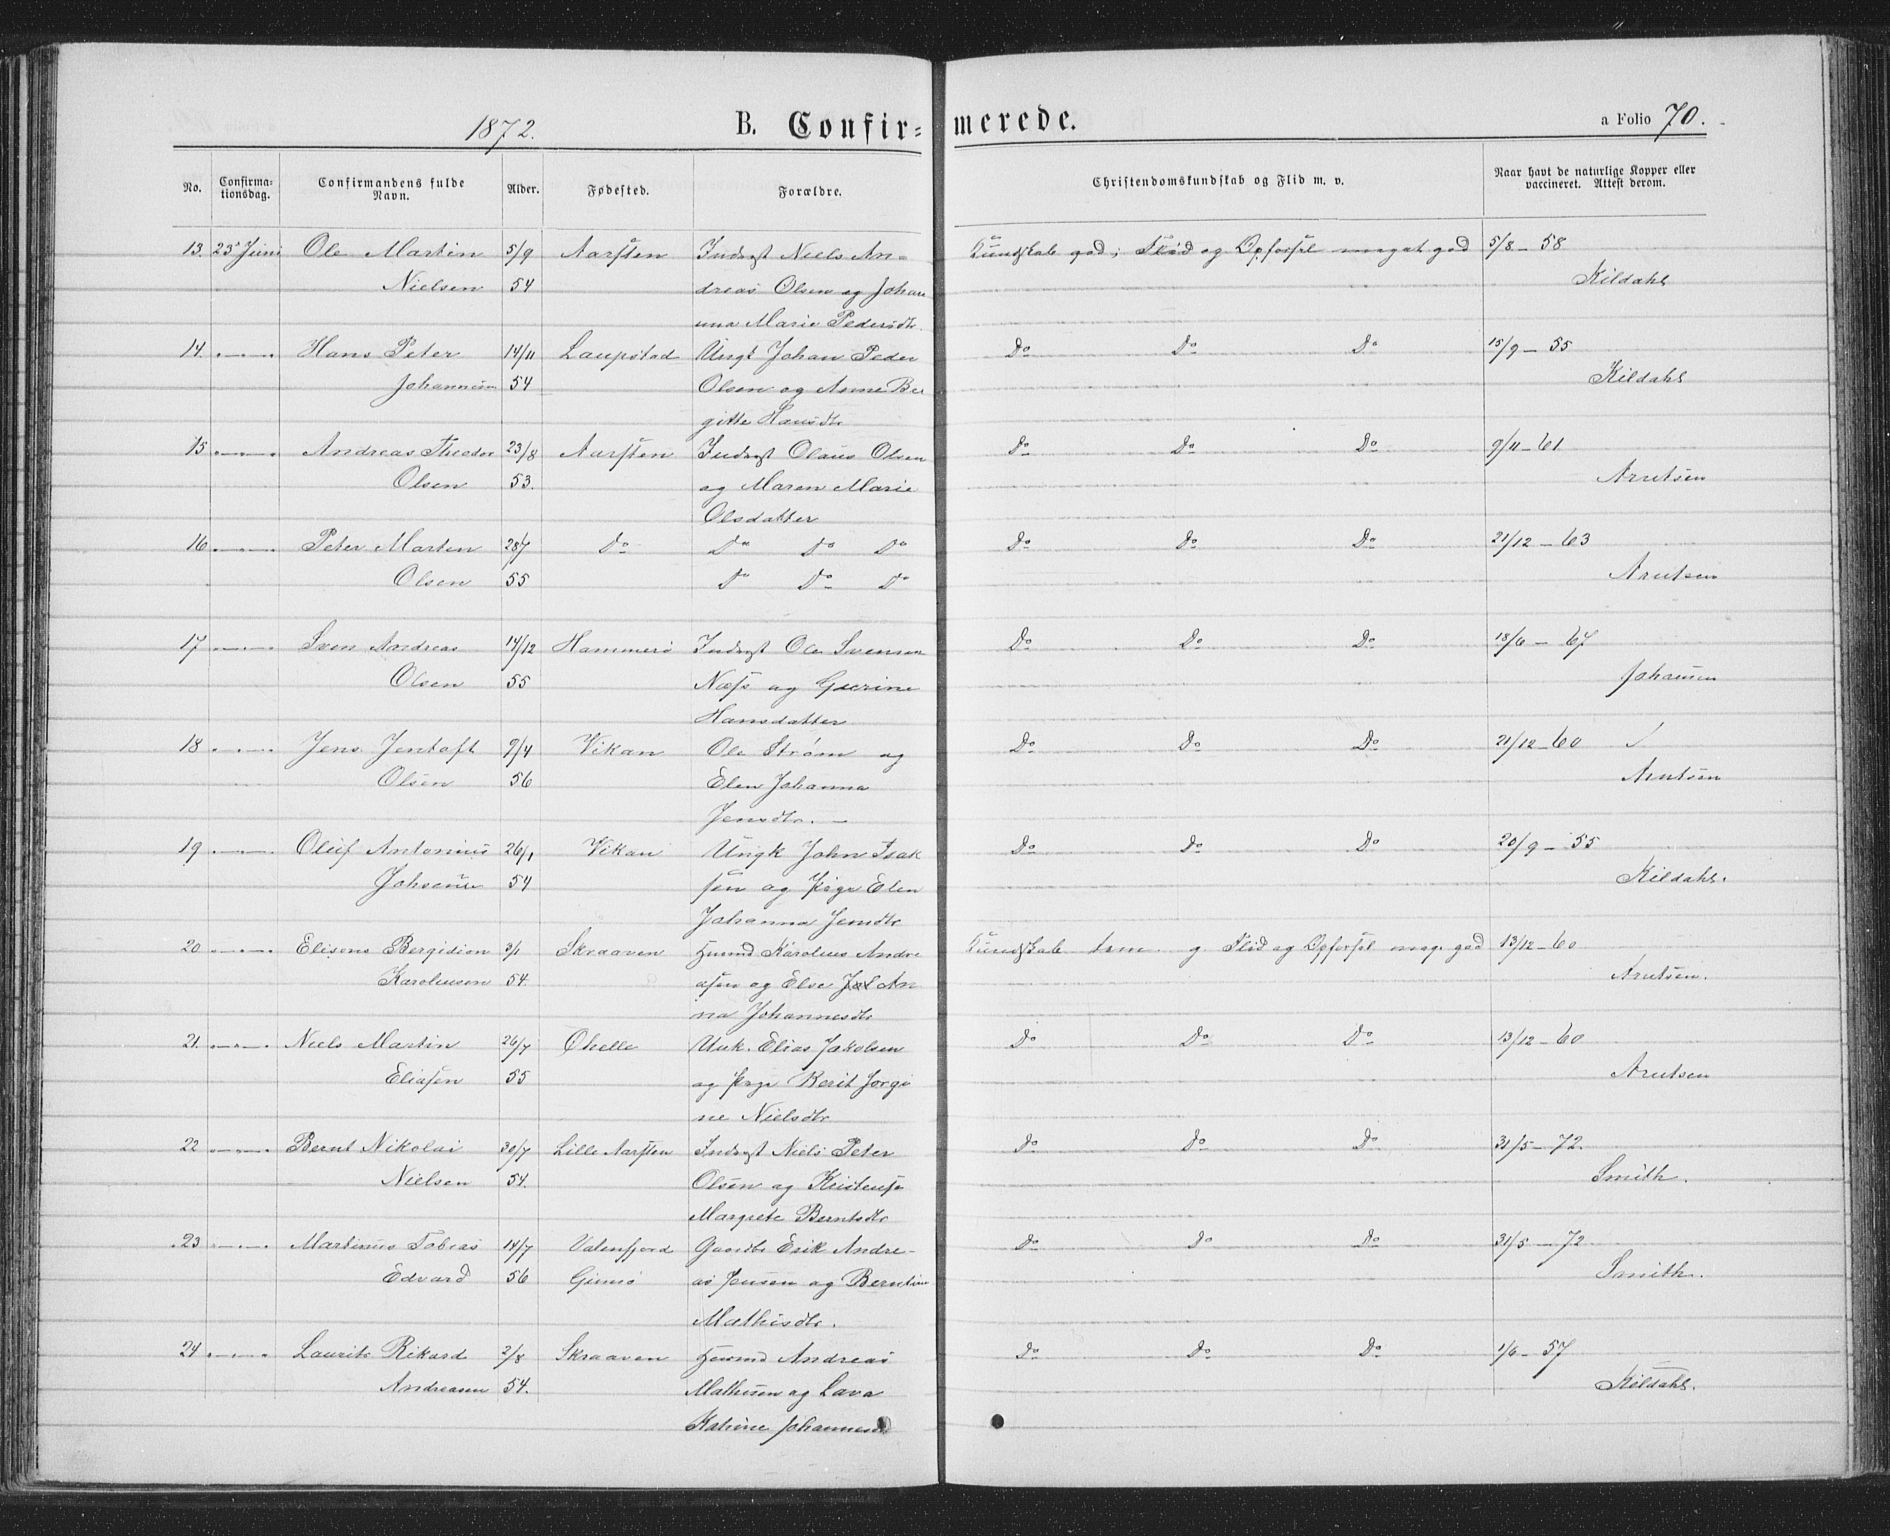 1872. B. Confir= merede. a Folio 70.
No. Confirma=tionsdag. Confirmandens fulde Navn. Alder. Fødested. Forældre. Christendomskundskab og Flid m. v. Naar havt de naturlige Kopper eller vaccineret. Attest derom.
13. 23 Juni Ole Martin 5/9 Aarsten Indregt Niels An= Kundskab god; Flid og Opførsel meget god 5/8 - 58
Nielsen 54 dreas Olsen og Johan Kildahl
na Marie Pedersdtr.
14. Hans Peter 14/11 Laupstad Ungk Johan Peder Do Do Do 15/9 - 55
Johannesen 54 Olsen og Anne Ber Kildahl
gitte Hansdtr
15 Andreas Theodor 23/8 Aarsten Indregt Olaus Olsen Do Do Do 9/11 - 61
Olsen 53. og Maren Marie Arntsen
Olsdatter
16 Peter Martin 28/7 Do Do Do Do Do Do Do 21/12 - 63
Olsen 55 Do Do Do Arntsen
17 Sven Andreas 14/12 Hammerø Indregt Ole Svensen Do Do Do 18/6 - 67
Olsen 55 Næss og Gurine Johansen
Hansdatter
18 Jens Jentoft 9/4 Vikan Ole Strøm og Do Do Do 21/12 - 60 ✓
Olsen 56 Elen Johanna Arntsen
Jensdtr. -
19 Oluf Antonius 26/1 Vikan Ungk John Isak Do Do Do 20/9 - 55
Johnsen 54 sen og Pige Elen Kildahl.
Johanna Jensdtr
20 Elisons Bergidion 3/1 Skraaven Husmd Karolius Andre Kundskab tem. g. Flid og Opførsel meg. god 13/12 - 60
Karoliusen 54. asen og Else An Arntsen.
na Johannesdtr
21. Niels Martin 26/7 Ohelle Unk. Elias Jakobsen Do Do Do 13/12 - 60
Eliasen 55 og Pige Berit Jørgi Arntsen
ne Nielsdtr
22 Bernt Nikolai 30/7 Lille Aarsten Indregt Niels Peter Do Do Do 31/5 - 72.
Nielsen 54. Olsen og Kristense Smith.
Margrete Berntsdtr
23 Martinus Tobias 14/7 Vatenfjord Gaardbr Erik Andre- Do Do Do 31/5 - 72
Edvard 56 Gimsø as Jensen og Berntine Smith.
Mathisdtr.
24 Laurits Rikard 2/8 Skraaven Husmd Andreas Do Do Do 1/6 - 57
Andreasen 54. Mathisen og Lava Kildahl.
Katrine Johannesdr